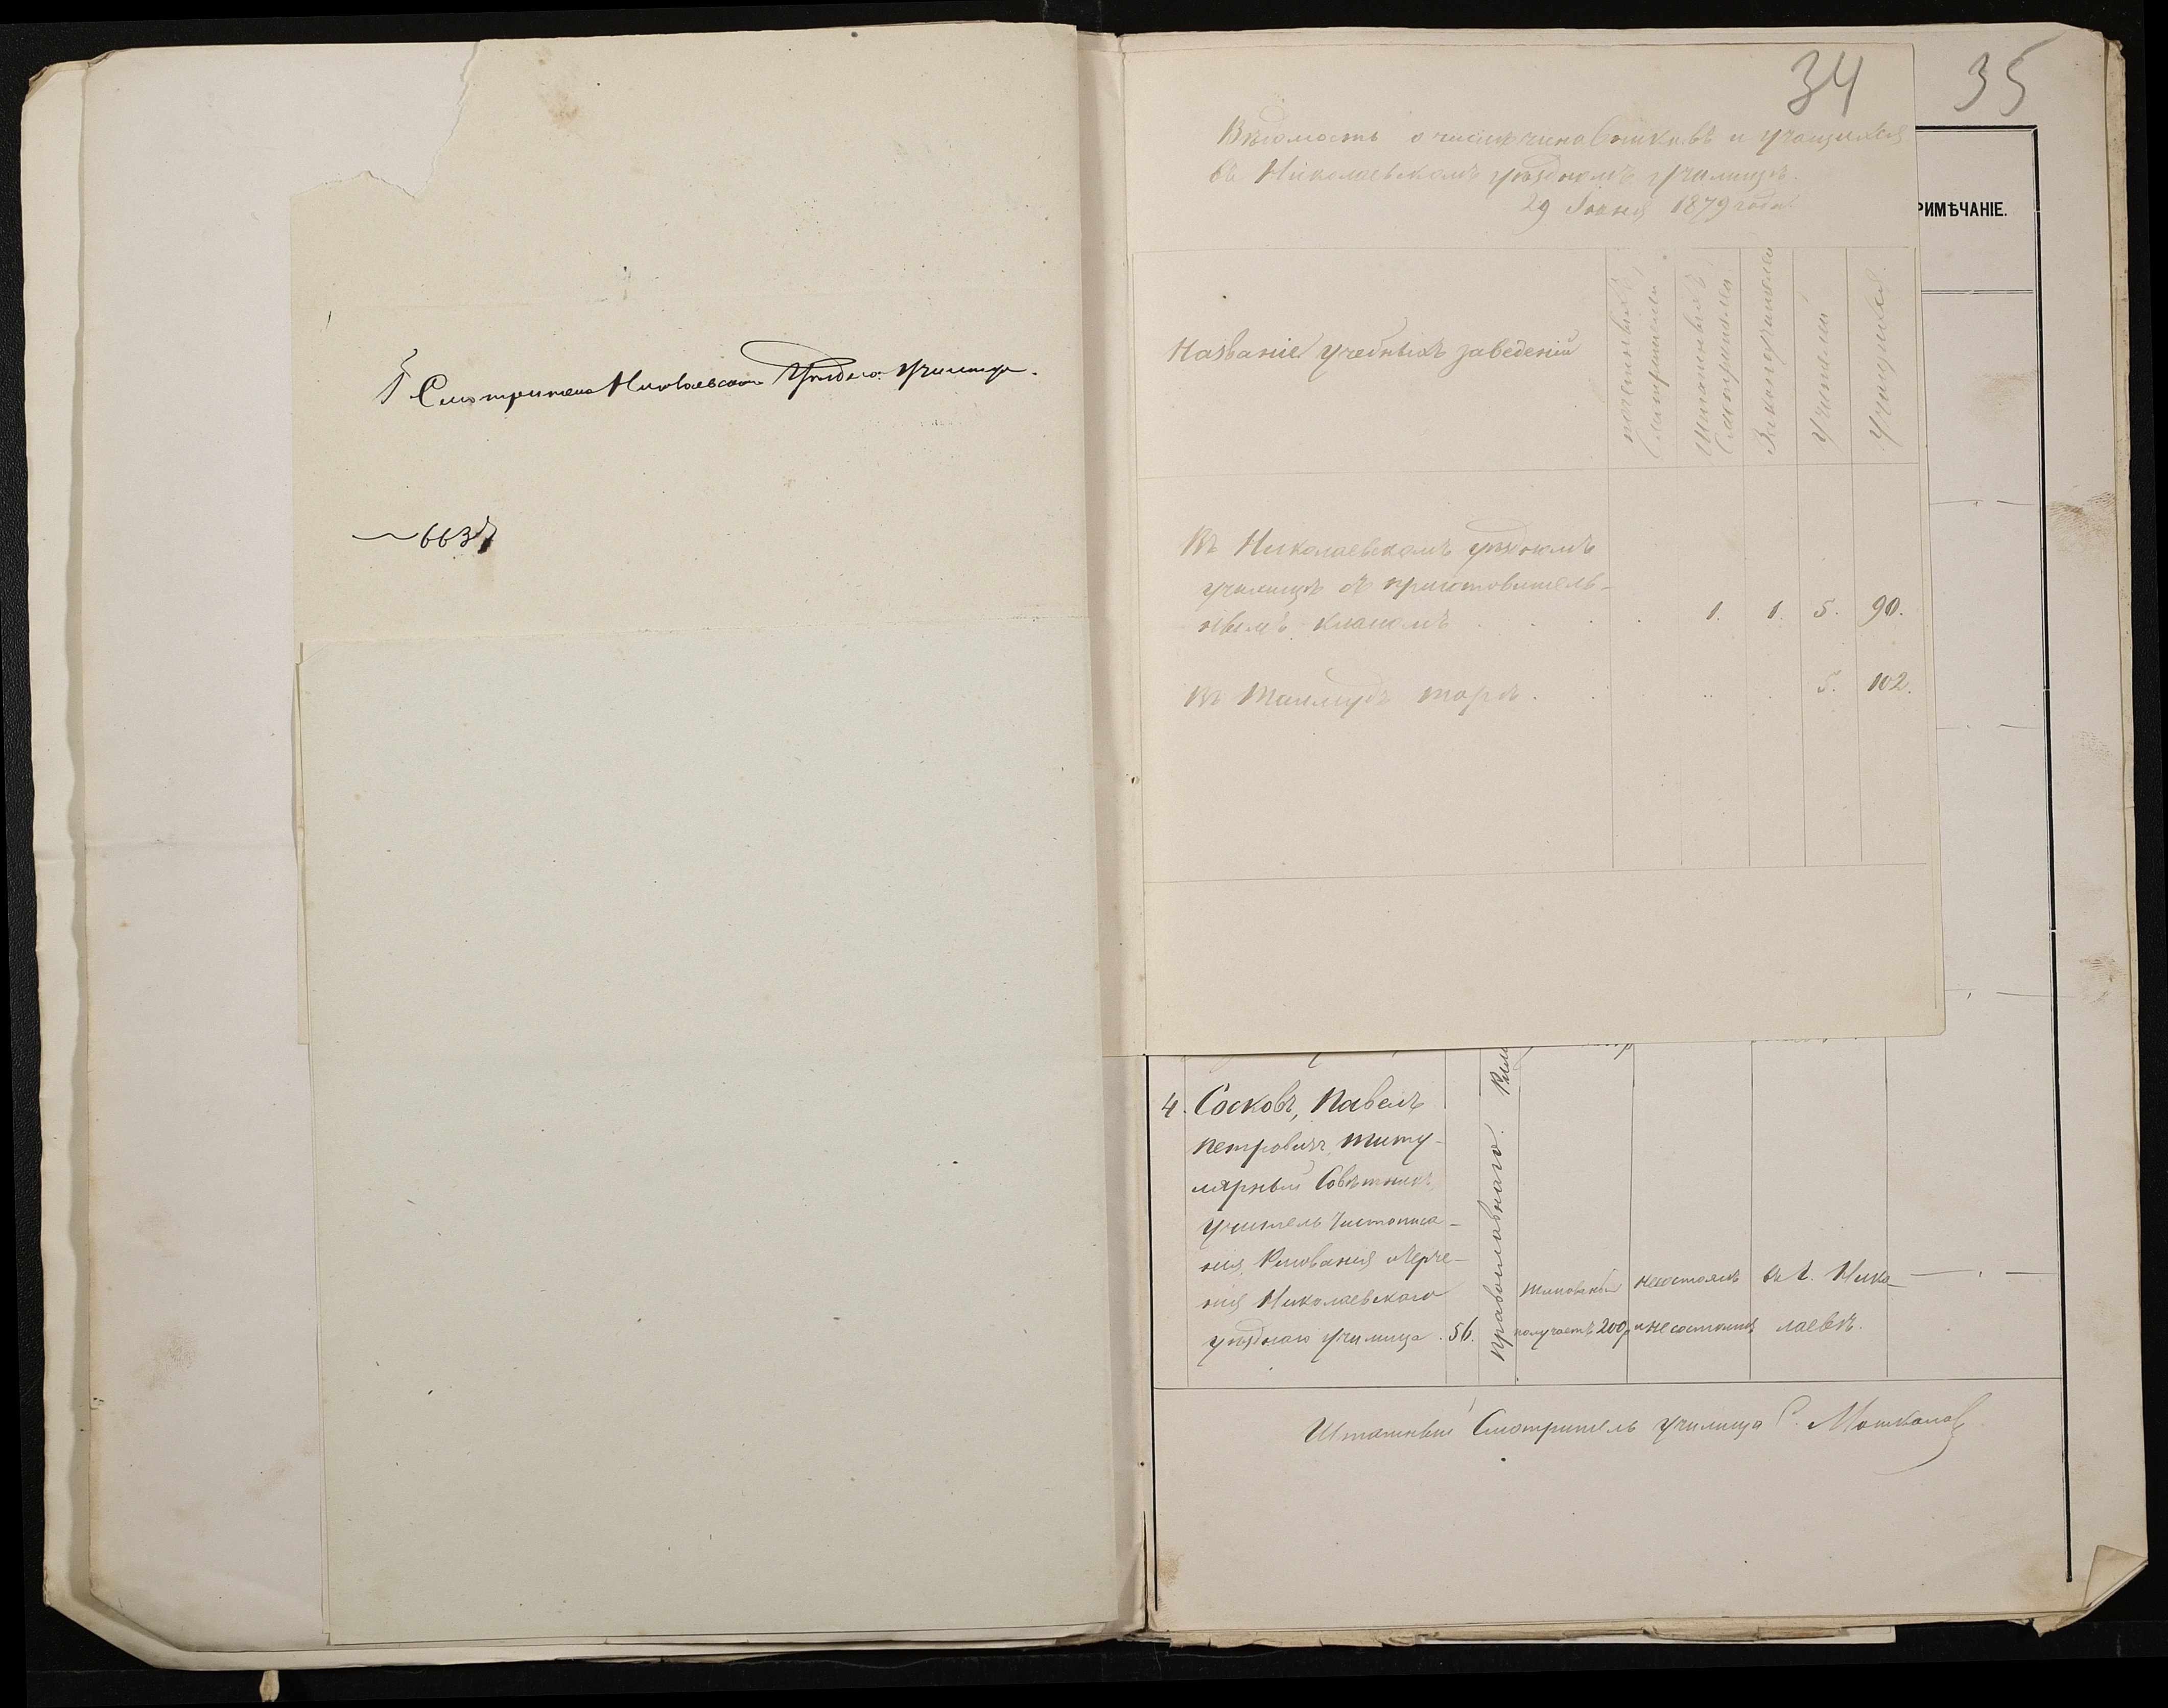 Г. Смотрителю Николаевскаго Уѣзднаго Училища.
663
34
35
Вѣдомость о числѣ чиновниковъ и учащихся
въ Николаевскомъ уѣздномъ училищѣ.
29 Іюня 1879 года.
РИМѢЧАНІЕ.
Названіе учебныхъ заведеній
почетныхъ смотрителей
Штатныхъ Смотрителей
Законоучителей
Учителей
Учащихся.
Въ Николаевскомъ уѣздномъ
училищѣ съ приготовитель-
нымъ классомъ . . . . 1. 1. 5. 90.
Въ Талмудъ торѣ . . . . 5. 102.
4. Сосковъ, Павелъ
Петровичъ, титу-
лярный Совѣтникъ,
учитель Чистописа-
нія, Рисованія и Черче-
нія Николаевскаго
уѣзднаго училища . 56.
Православнаго.
жалованья
получаетъ 200 р
не состоялъ
и не состоитъ
въ г. Нико-
лаевѣ.
Штатный Смотритель училища С. Мошкалов